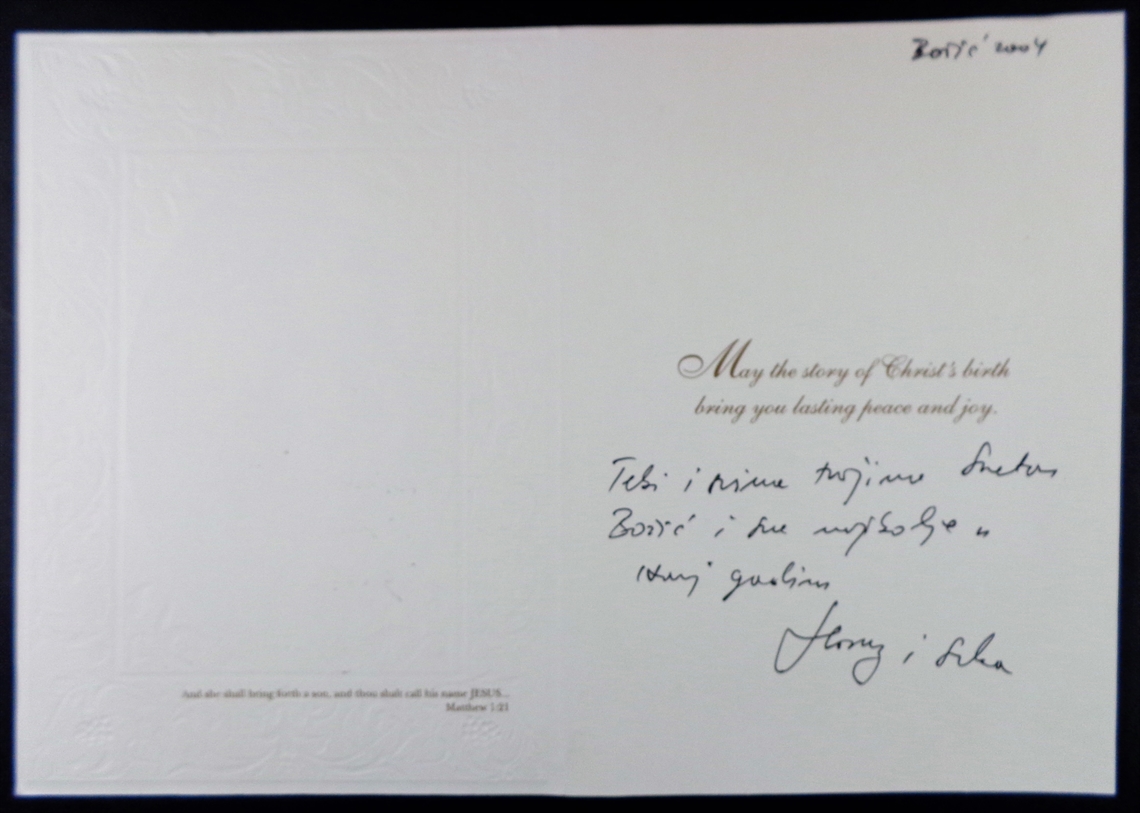 And she shall bring forth a son, and thou shalt call his name JESUS...
Matthew 1:21
Božić 2004
May the story of Christ's birth
bring you lasting peace and joy.
Tebi i svima tvojima Sretan
Božić i sve najbolje u
godini
i